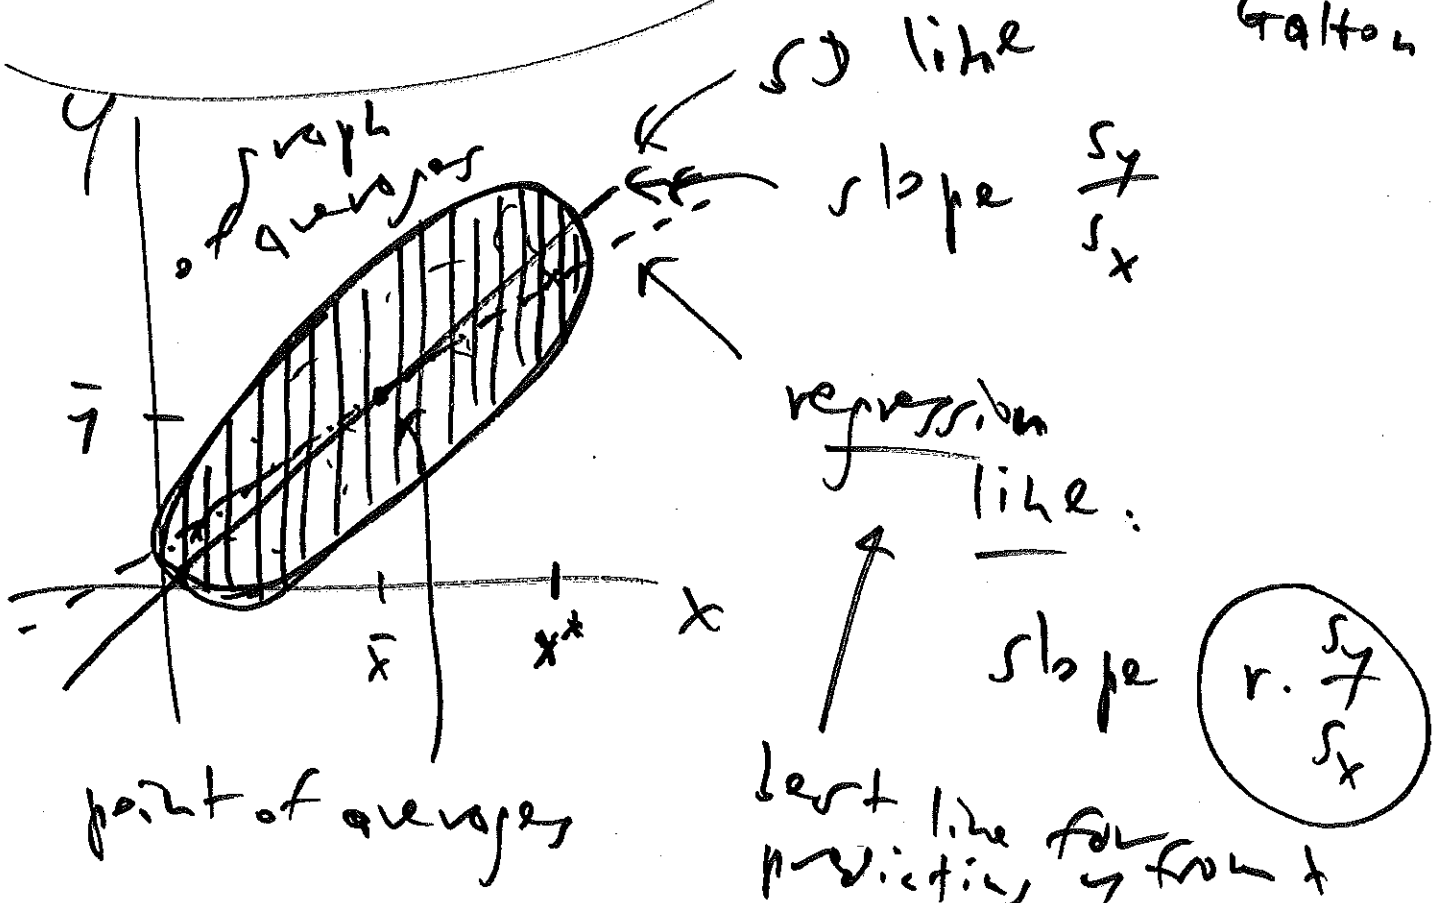 Galton
SD line
slope s_y / s_x
y
graph
of averages
ȳ
regression
line.
x̄
x*
x
slope r · s_y / s_x
point of averages
best line for
predicting y from x